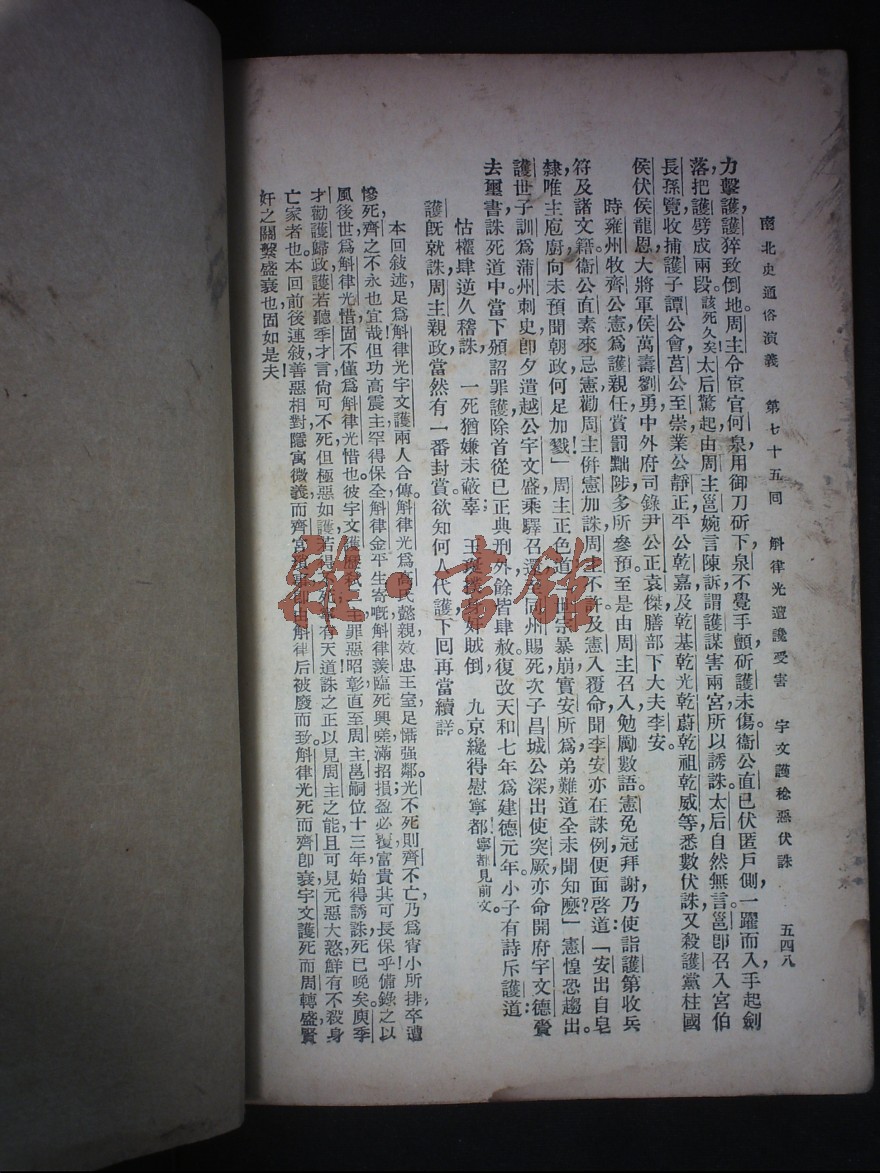 南北史通俗演義　第七十五回　斛律光遭讒受害　宇文護稔惡伏誅　五四八
力擊護護猝致倒地。周主令宦官何泉用御刀斫下，泉不覺手顫，斫護未傷。衞公直已伏匿戶側，一躍而入，手起劍
落，把護劈成兩段。該死久矣！太后驚起，由周主邕婉言陳訴，謂護謀害兩宮，所以誘誅。太后自然無言。邕卽召入宮伯
長孫覽，收捕護子譚公會、莒公至、崇業公靜、正平公乾嘉及乾基、乾光、乾蔚、乾祖、乾威等，悉數伏誅，又殺護黨柱國
侯伏侯龍恩、大將軍侯萬壽、劉勇、中外府司錄尹公正、袁傑、膳部下大夫李安。
時雍州牧齊公憲爲護親任，賞罰黜陟，多所參預，至是由周主召入，勉勵數語，憲免冠拜謝，乃使詣護第收兵
符及諸文籍。衞公直素來忌憲，勸周主併憲加誅，周主不許。及憲入覆命，聞李安亦在誅例，便面啓道：「安出自皂
隸，唯主庖廚，向未預聞朝政，何足加戮！」周主正色道：世宗暴崩，實安所爲，弟難道全未聞知麽？」憲惶恐趨出。
護世子訓爲蒲州刺史，卽夕遣越公宇文盛乘驛召還，至同州賜死。次子昌城公深出使突厥，亦命開府宇文德齎
去璽書，誅死道中。當下頒詔罪護，除首從已正典刑外，餘皆肆赦，復改天和七年爲建德元年。小子有詩斥護道：
怙權肆逆久稽誅，　一死猶嫌未蔽辜；　玉珽撲奸賊倒，　九京纔得慰寧都！寧都見前文。
護旣就誅，周主親政，當然有一番封賞，欲知何人代護，下回再當續詳。
本回敘述，足爲斛律光宇文護兩人合傳。斛律光爲高氏懿親，效忠王室，足懾强鄰；光不死則齊不亡，乃爲宵小所排，卒遭
慘死，齊之不永也宜哉！但功高震主，罕得保全，斛律金平生寄嘅，斛律羨臨死興嗟，滿招損，盈必覆，富貴其可長保乎？備錄之以
風後世，爲斛律光惜，固不僅爲斛律光惜也。彼宇文護歷弒二主，罪惡昭彰，直至周主邕嗣位十三年，始得誘誅，死已晚矣。庾季
才勸護歸政，護若聽季才言，尙可不死，但極惡如護，若得不死，寧有天道？誅之正以見周主之能，且可見元惡大憝，鮮有不殺身
亡家者也。本回前後連敍，善惡相對，隱寓微義，而齊宮廢立卽由斛律后被廢而致，斛律光死而齊卽衰，宇文護死而周轉盛，賢
奸之關繫盛衰也，固如是夫！
雜·書館